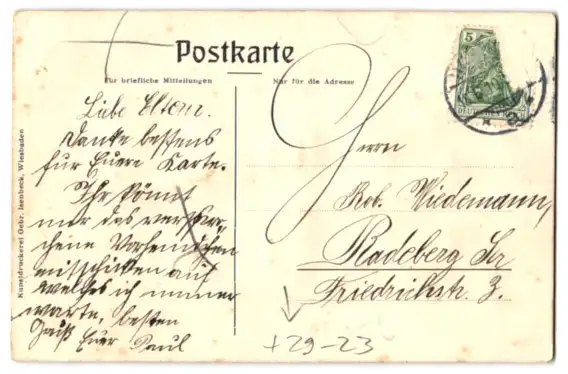 Postkarte
Für briefliche Mitteilungen
Nur für die Adresse
Kunstdruckerei Gebr. Isenbeck, Wiesbaden
5
Liebe Eltern.
Danke bestens
für Euere Karte.
Ihr könnt
mir das verspro-
chene
mitschicken auf
welches ich immer
warte, besten
Gruß
Euer Paul
Herrn
Rob. Wiedemann,
Radeberg Sa
Friedrichstr. 3.
+29-23